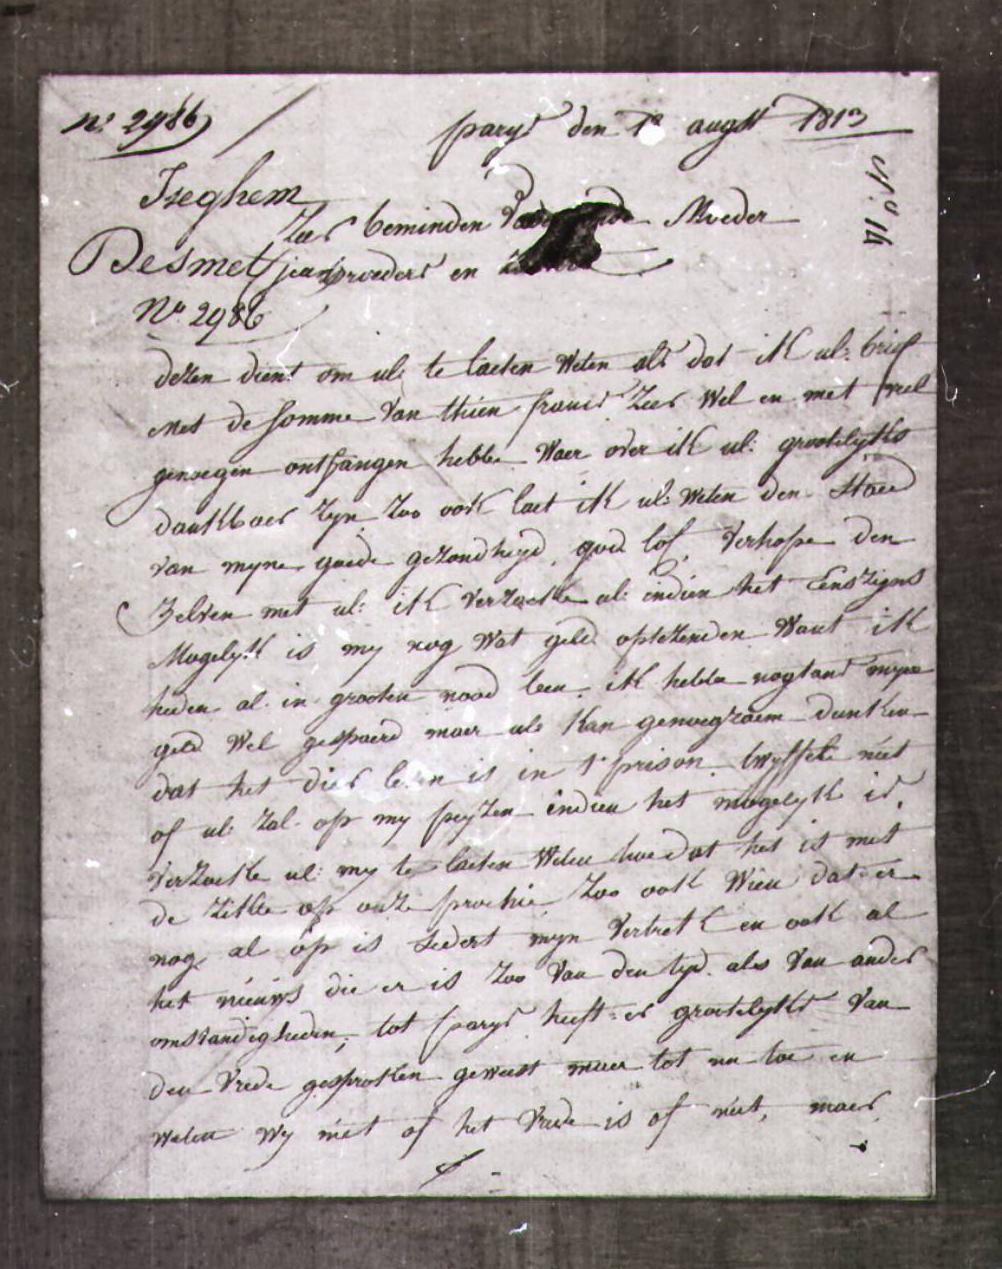 n: 2986
parys den 1e augst 1813
n° 14
Iseghem
Zeer beminden Vader ende Moeder
Desmet jean
broeders en Zusters
N° 2986
dezen dient om ul: te laeten Weten als dat ik ul: brief
Met de somme Van thien francs Zeer Wel en met veel
genoegen ontfangen hebbe Waer over ik ul: grootelyks
dankbaer Zyn Zoo ook laet ik ul: Weten den Staed
van myne goede gezondheyd, god lof, Verhope den
Zelven met ul: ik Verzoeke ul: indien het Eenszigns
Mogelyk is my nog Wat geld optezenden Want ik
heden al in grooten nood ben, ik hebbe nogtans myne
geld Wel gespaerd maer ul: kan genoegzaem dunken
dat het dier leven is in t' prison. twyffele niet
of ul: Zal op my peyzen indien het mogelyk is,
Verzoeke ul: my te laeten Weten hoe dat het is met
de Zikte op onze prochie Zoo ook Wien dat er
nog al op is Sedert myn Vertrek en ook al
het nieuws die er is Zoo Van den tyd als Van ander
omstandigheden; tot parys heeft er grootelyks Van
den Vrede gesproken geweest maer tot nu toe en
Weten Wy niet of het Vrede is of niet, maer